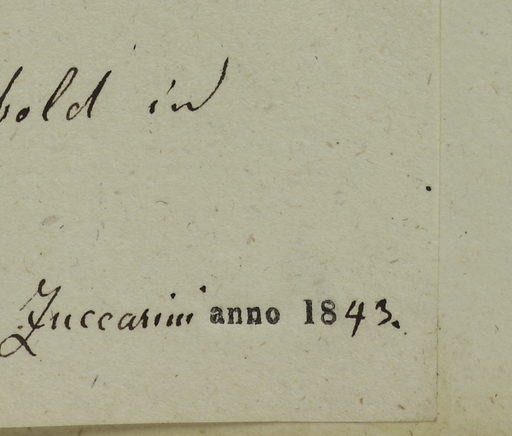 bold in
Zuccarini anno 1843.